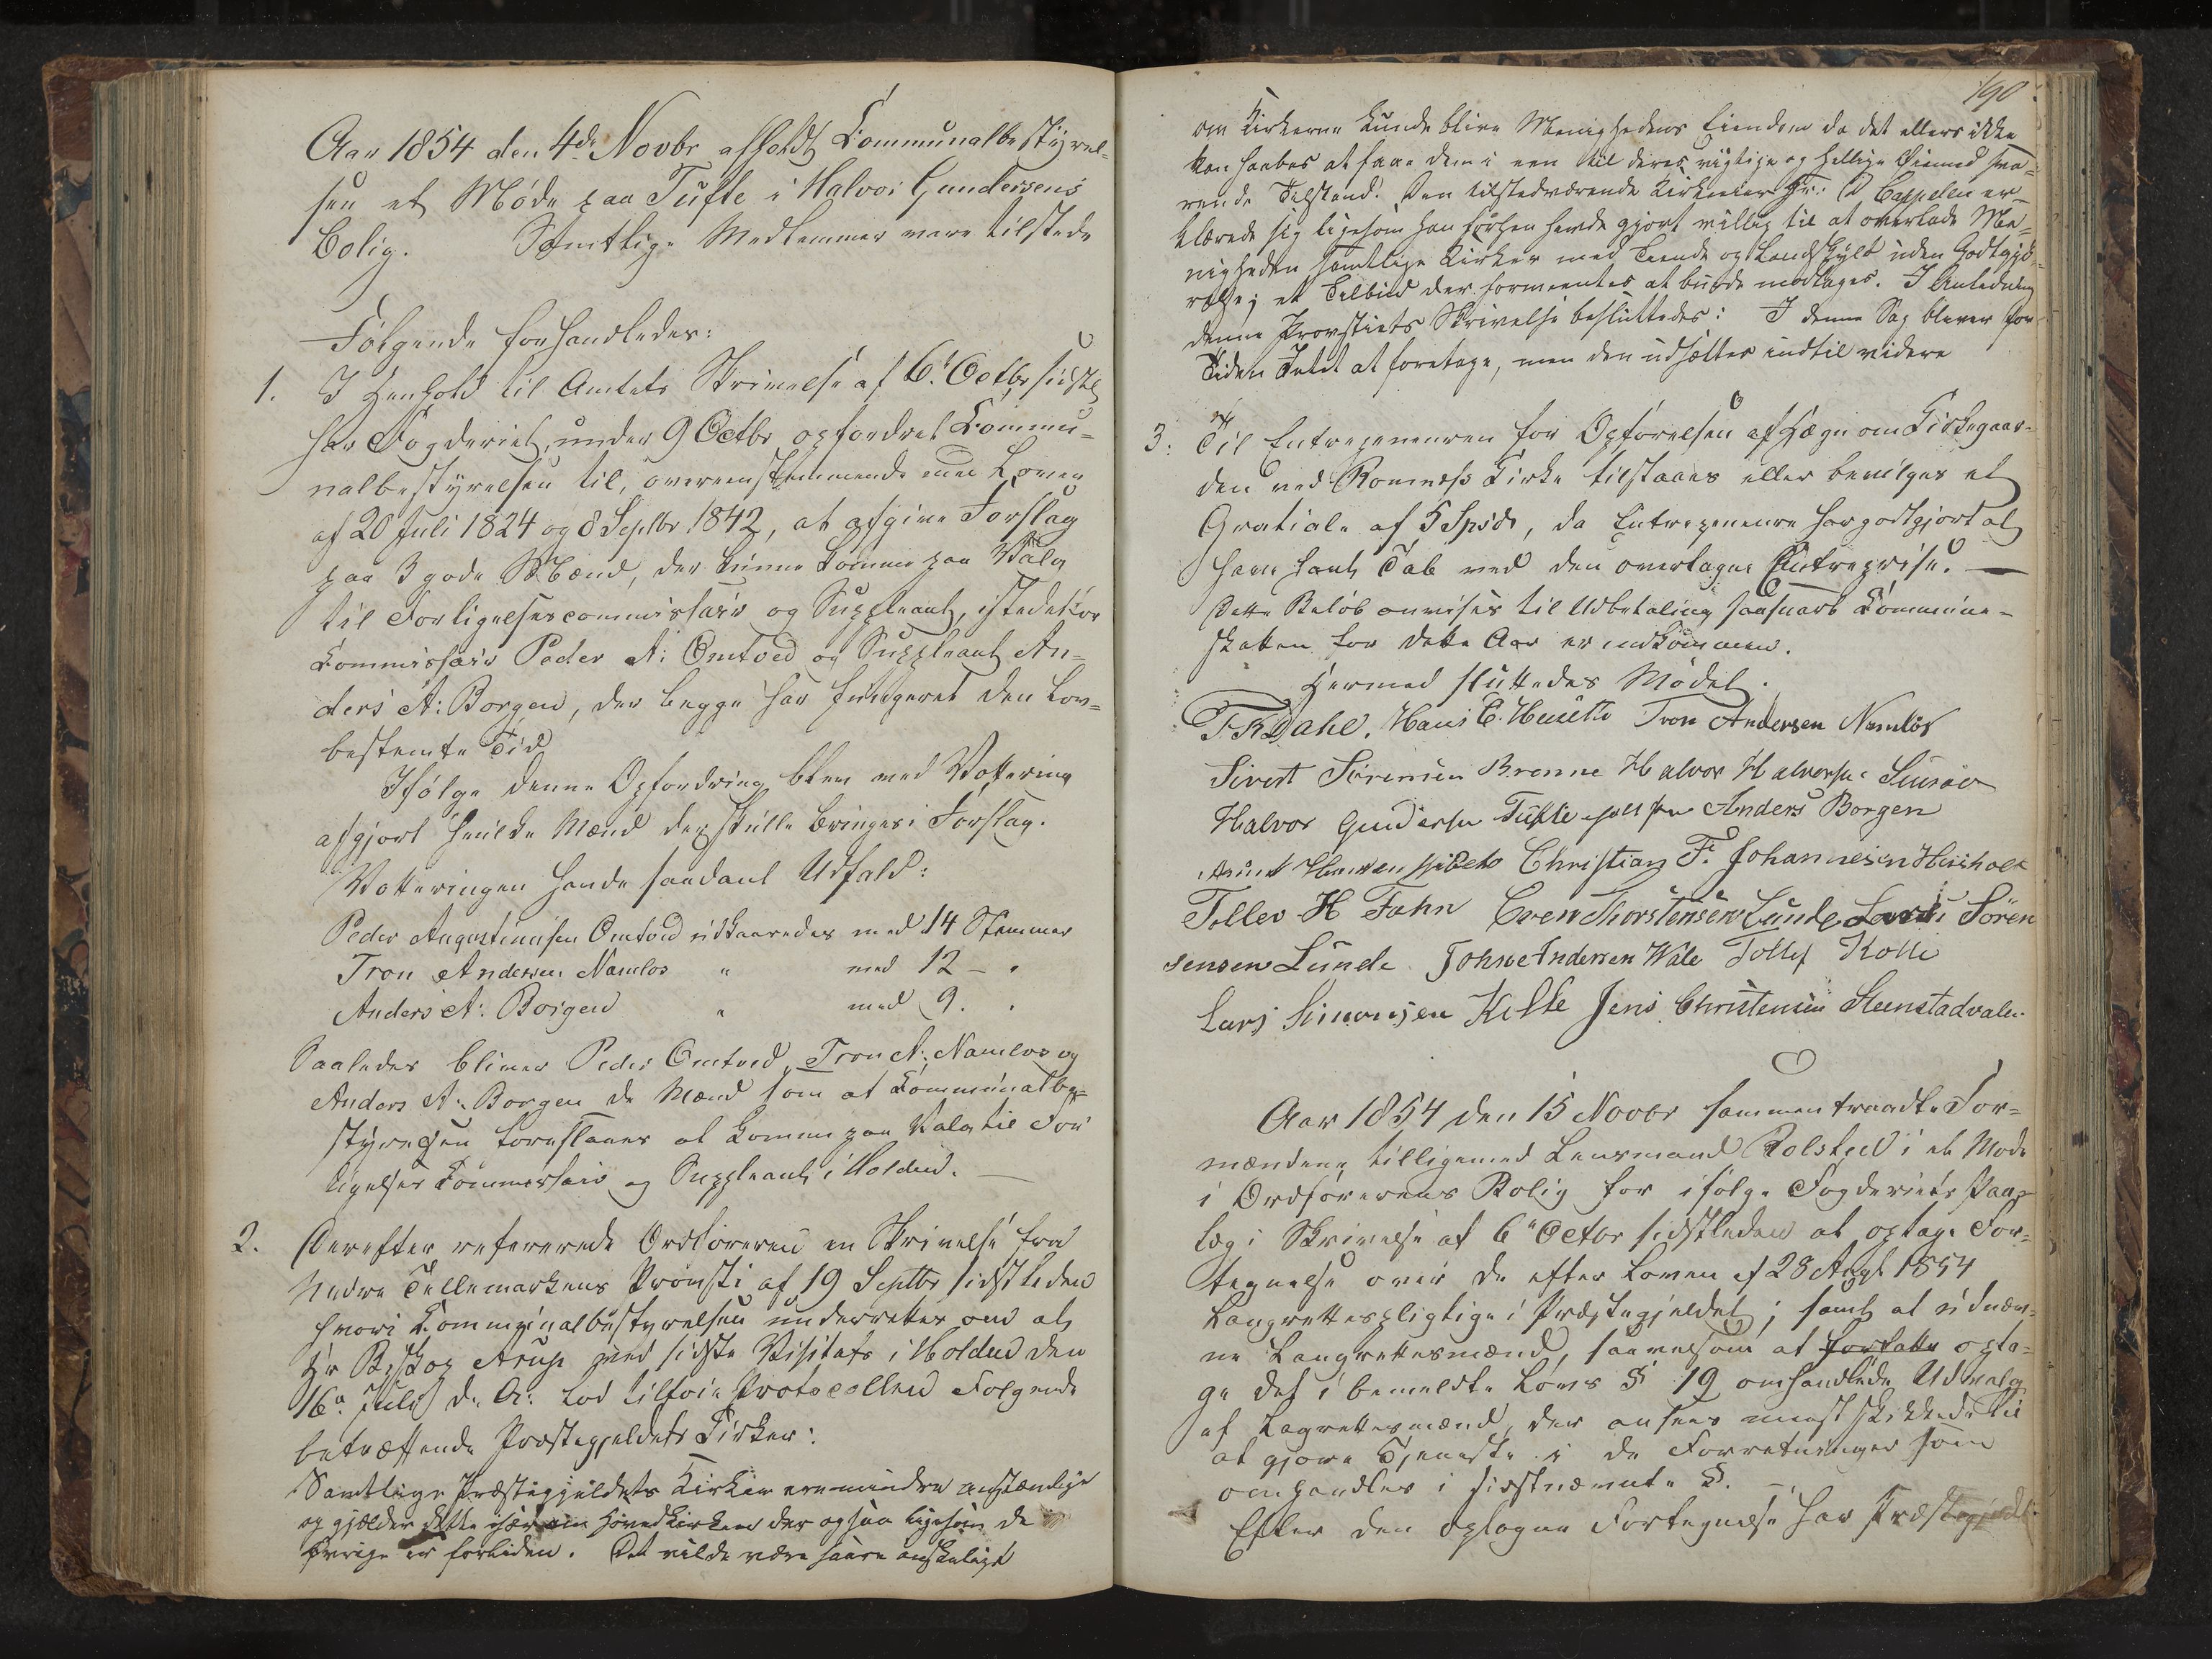 Aar 1854 den 4de Novbr afholdt Communalbestyrel-
sen et Møde paa Tufte i Halvor Gundersens
Bolig. Samtlige Medlemmer vare tilstede
Følgende forhandledes:
1. I Henhold til Amtets Skrivelse af 6te Octbr sidstl
har Fogderiet under 9 Octbr opfordret Commu-
nalbestyrelsen til, overeensstemmende med Loven
af 20 Juli 1824 og 8 Septbr 1842, at afgive Forslag
paa 3 gode Mænd, der kunne komme paa Valg
til Forligelsescommissair og Suppleant, istedetfor
Commissair Peder A: Omtved og Suppleant An-
ders A: Borgen, der begge har fungeret den lov-
bestemte Tid
Ifølge denne Opfordring blev ved Vottering
afgjort hvilke Mænd der skulle bringes i Forslag.
Votteringen havde saadant Udfald:
Peder Augustinussen Omtved udkaaredes med 14 Stemmer
Tron Andersen Namløs " med 12 - "
Anders A: Borgen " med 9. "
Saaledes bliver Peder Omtved, Tron A: Namløs og
Anders A: Borgen de Mænd som af Communalbe-
styrelsen foreslaaes at komme paa Valg til For-
ligelses Commissair og Suppleant i Holden. —
2. Derefter refererede Ordføreren en Skrivelse fra
Nedre Tellemarkens Provsti af 19 Septbr sidstleden
hvori Communalbestyrelsen underrettes om at
Hr Biskop Arup ved sidste Visitats i Holden den
16de Juli d. A: lod tilføie Protocollen Følgende
betræffende Præstegjeldets Kirker:
Samtlige Præstegjeldets Kirker ere mindre anstændige
og gjælder dette især om Hovedkirken der ogsaa ligesom de
øvrige er forliden. Det vilde være saare ønskeligt
190.
om Kirkerne kunde blive Menighedens Eiendom da det ellers ikke
kan haabes at faae dem i een til deres vigtige og hellige Øiemed sva-
rende Tilstand. Den tilstedværende Kirkeeier Hr: D Cappelen er-
klærede sig ligesom han forhen havde gjort villig til at overlade Me-
nigheden samtlige Kirker med Tiende og Landskyld uden Godtgjø-
relse; et Tilbud der formeentes at burde modtages. I Anledning
denne Provstiets Skrivelse besluttedes: I denne Sag bliver for
Tiden Intet at foretage, men den udsættes indtil videre
3: Til Entrepeneuren for Opførelsen af Hægn om Kirkegaar-
den ved Romnæs Kirke tilstaaes eller bevilges et
Gratiale af 5 Spsdr, da Entrepeneuren har godtgjort at
have havt Tab ved den overtagne Entreprise. —
Dette Beløb anvises til Udbetaling saasnart Commune-
skatten for dette Aar er indkommen.
Hermed sluttedes Mødet.
F K Dahl. Hans C. Huseth Tron Andersen Namløs
Sivert Sørensen Brenne Halvor Halvorsen
Halvor Gundersen Tufte Anders Borgen
Christian F. Johannesen Hersholt
Tollev H Fahn Even Thorstensen Lunde Lars Sören
sensen Lunde John Andersen Wale Tollef Kolle
Lars Simonsen Kiste Jens Christensen Steenstadvalen
Aar 1854 den 15 Novbr sammentraadte For-
mændene tilligemed Lensmand Rolsted i et Møde
i Ordførerens Bolig for ifølge Fogderiets Paa-
læg i Skrivelse af 6te Octbr sidstleden at optage For-
tegnelse over de efter Loven af 28 Augt 1854
Laugrettespligtige i Præstegjeldet; samt at udnæv-
ne Laugrettesmænd, saavelsom at forfatte opta-
ge det i bemeldte Lovs § 19 omhandlede Udvalg
af Lagrettesmænd, der ansees meest skikkede til
at gjøre Tjeneste i de Forretninger som
omhandles i sidstnævnte §.
Efter den optagne Fortegnelse har Præstegjeldet